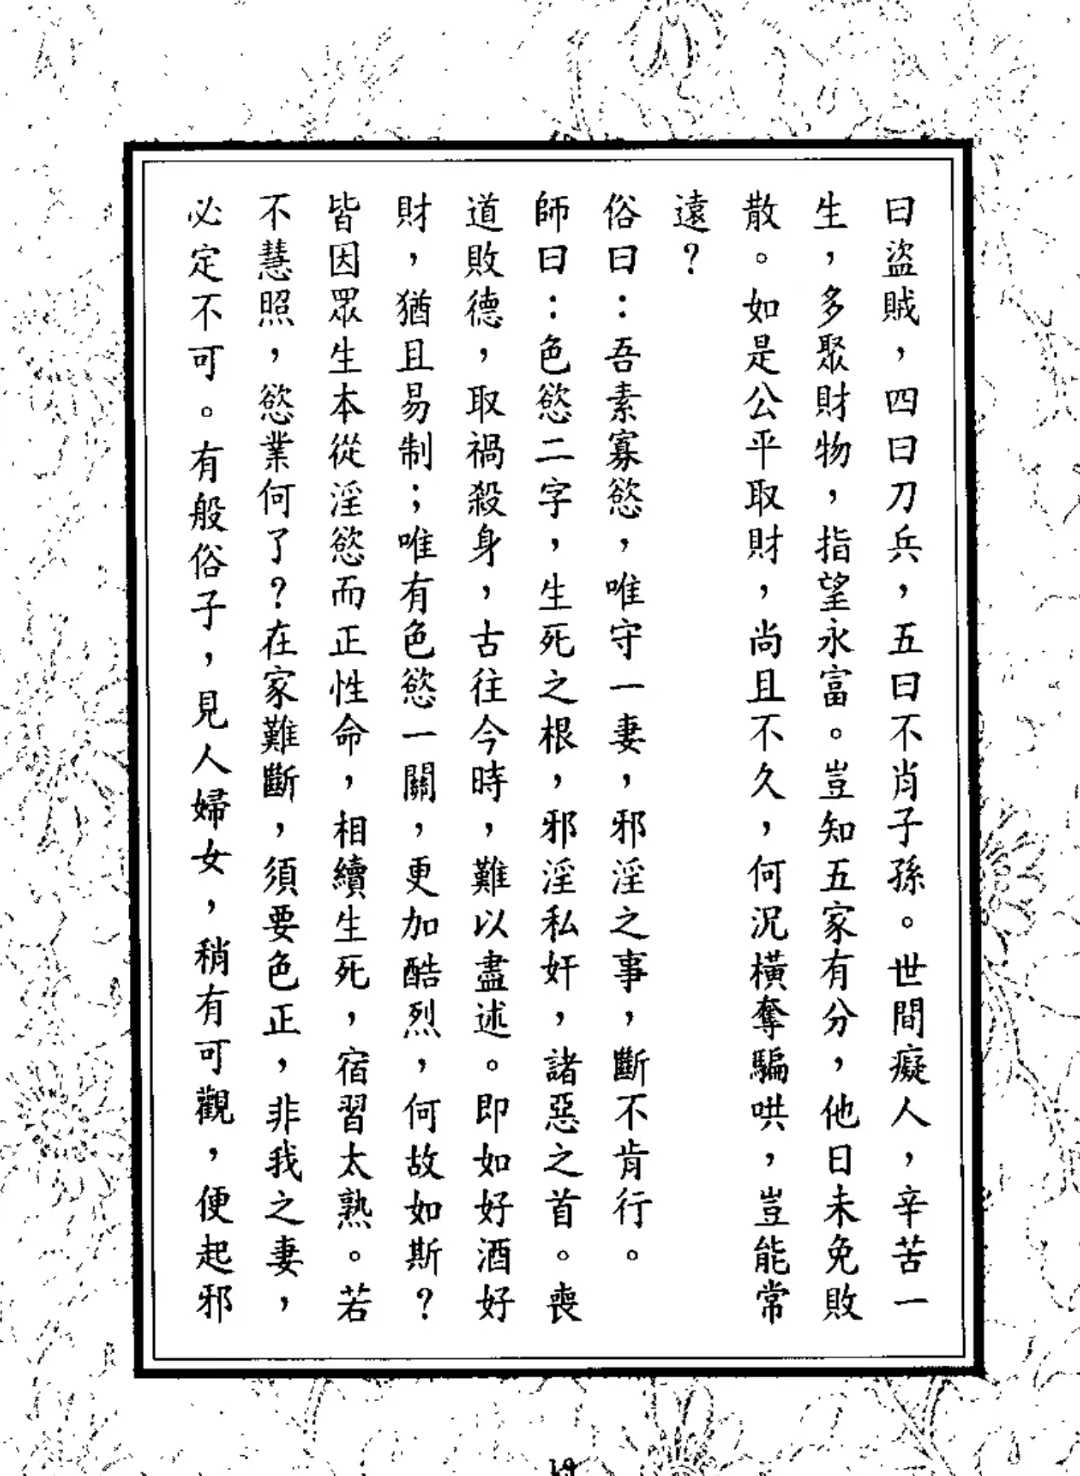 曰盜賊，四曰刀兵，五曰不肖子孫。世間癡人，辛苦一
生，多聚財物，指望永富。豈知五家有分，他日未免敗
散。如是公平取財，尚且不久，何況橫奪騙哄，豈能常
遠？
俗曰：吾素寡慾，唯守一妻，邪淫之事，斷不肯行。
師曰：色慾二字，生死之根，邪淫私奸，諸惡之首。喪
道敗德，取禍殺身，古往今時，難以盡述。即如好酒好
財，猶且易制；唯有色慾一關，更加酷烈，何故如斯？
皆因眾生本從淫慾而正性命，相續生死，宿習太熟。若
不慧照，慾業何了？在家難斷，須要色正，非我之妻，
必定不可。有般俗子，見人婦女，稍有可觀，便起邪